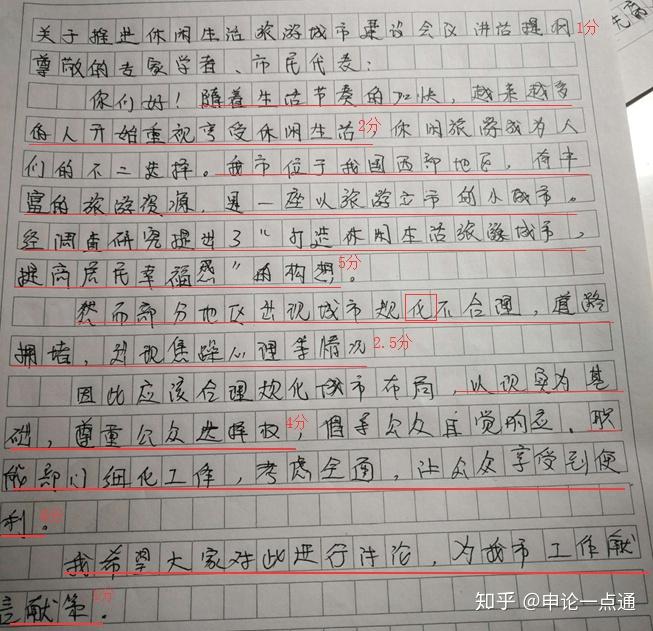 关于推进休闲生活旅游城市建设会议讲话提纲 1分
尊敬的专家学者、市民代表:
你们好!随着生活节奏的加快,越来越多
的人开始重视享受休闲生活 2分 休闲旅游成为人
们的不二选择。我市位于我国西部地区,有丰
富的旅游资源,是一座以旅游立市的小城市。
经调查研究提出了“打造休闲生活旅游城市,
提高居民幸福感”的构想 5分。
然而部分地区出现城市规化不合理,道路
拥堵,出现焦躁心理等情况 2.5分
因此应该合理规化城市布局,以现实为基
础,尊重公众选择权 4分,倡导公众自觉响应。职
能部门细化工作,考虑全通,让公众享受到便
利。
我希望大家对此进行讨论,为我市工作献
言献策。
知乎 @申论一点通